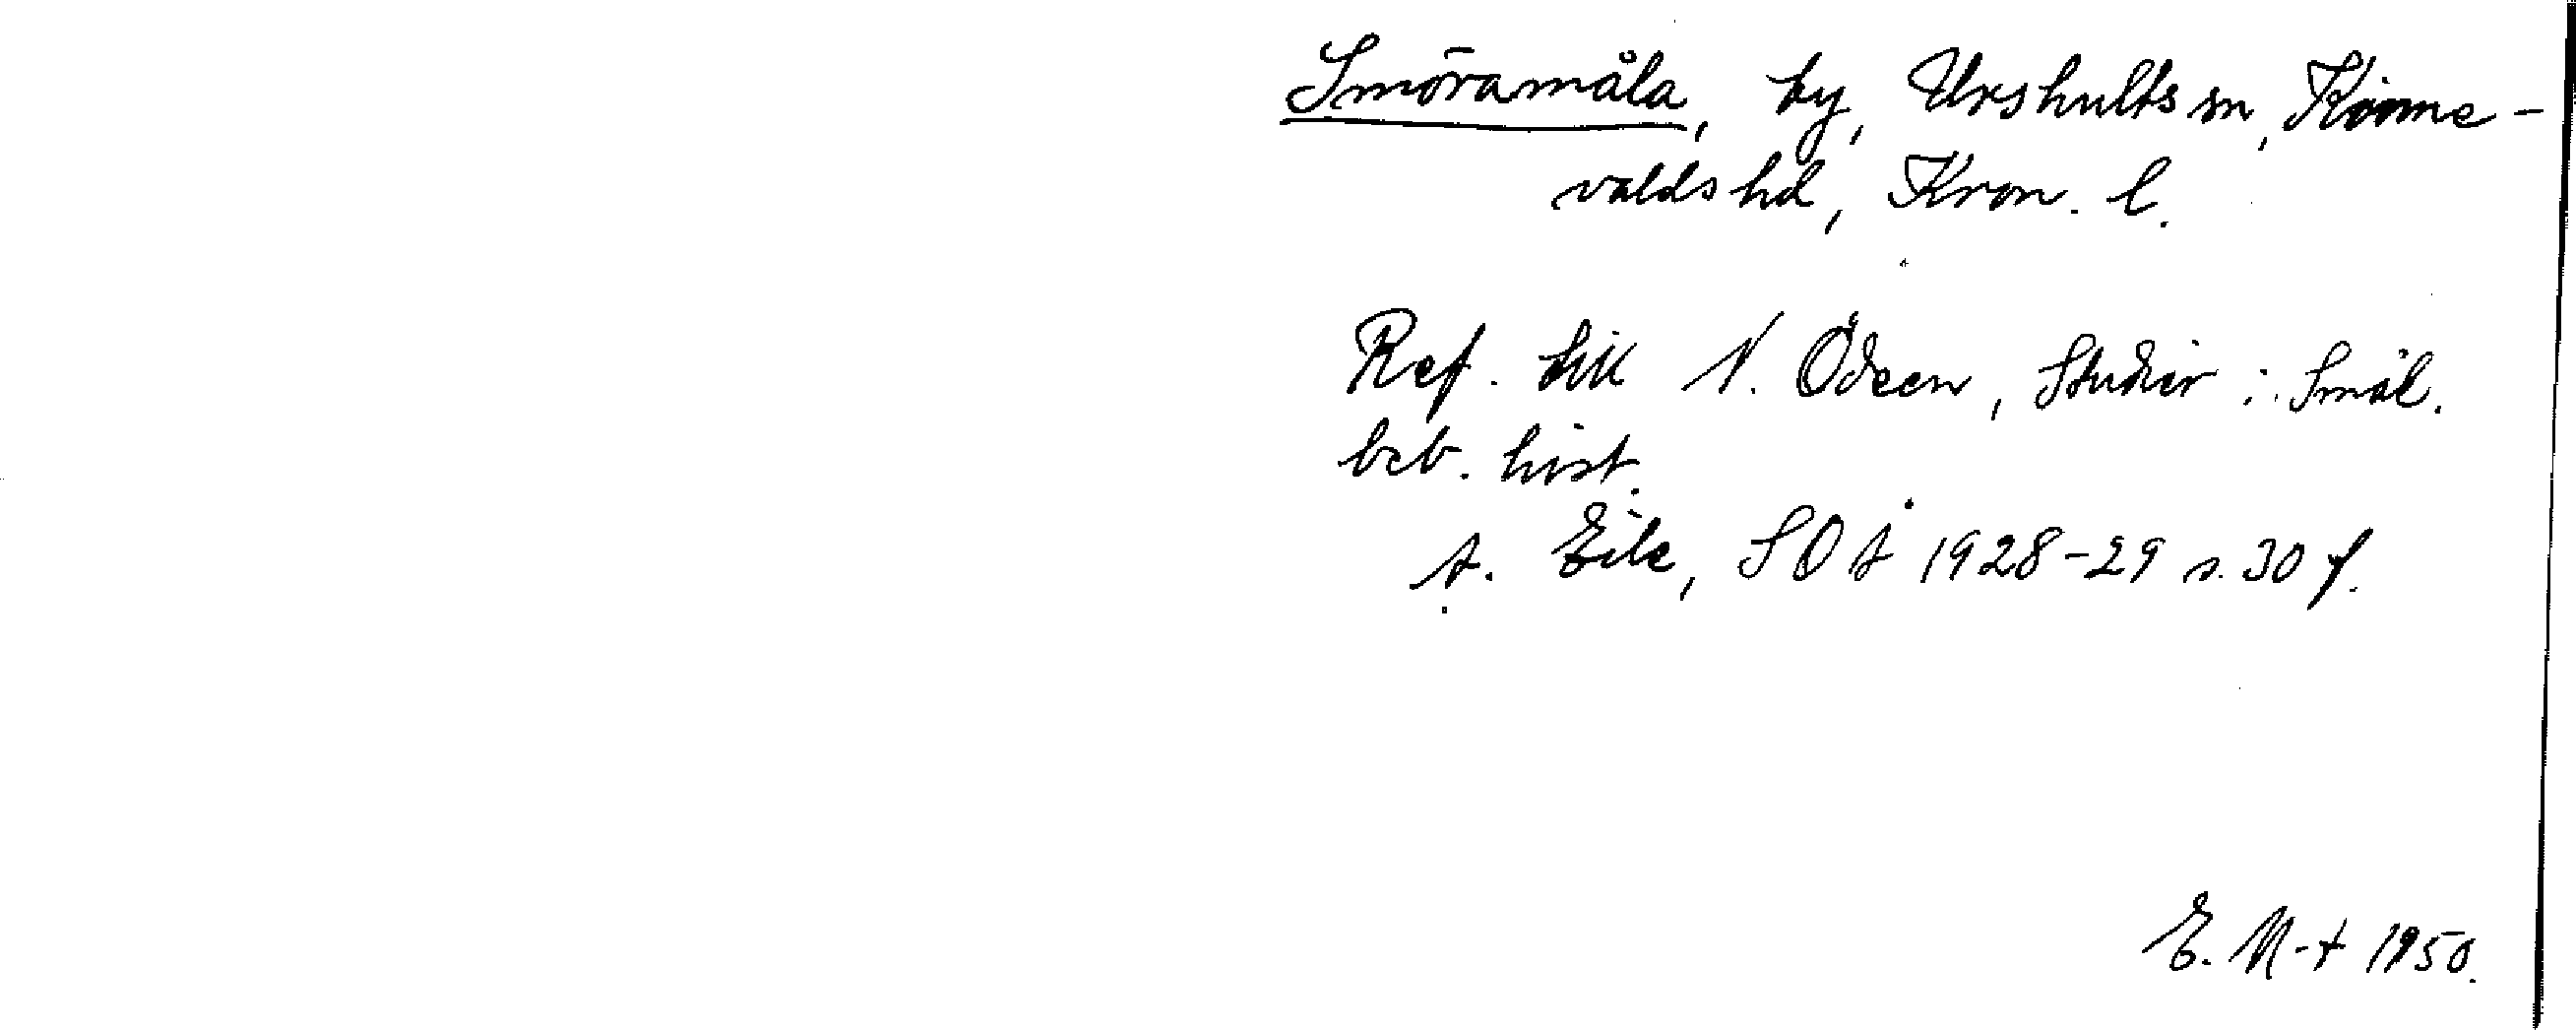 Smöramåla, by, Urshults sn, Kinne-
valds hd, Kron. l.
Ref. till N. Ödeen, Studier i Smål.
beb. hist.
A. Eile, SOÅ 1928-29 s. 30 f.
E. M-t 1950.